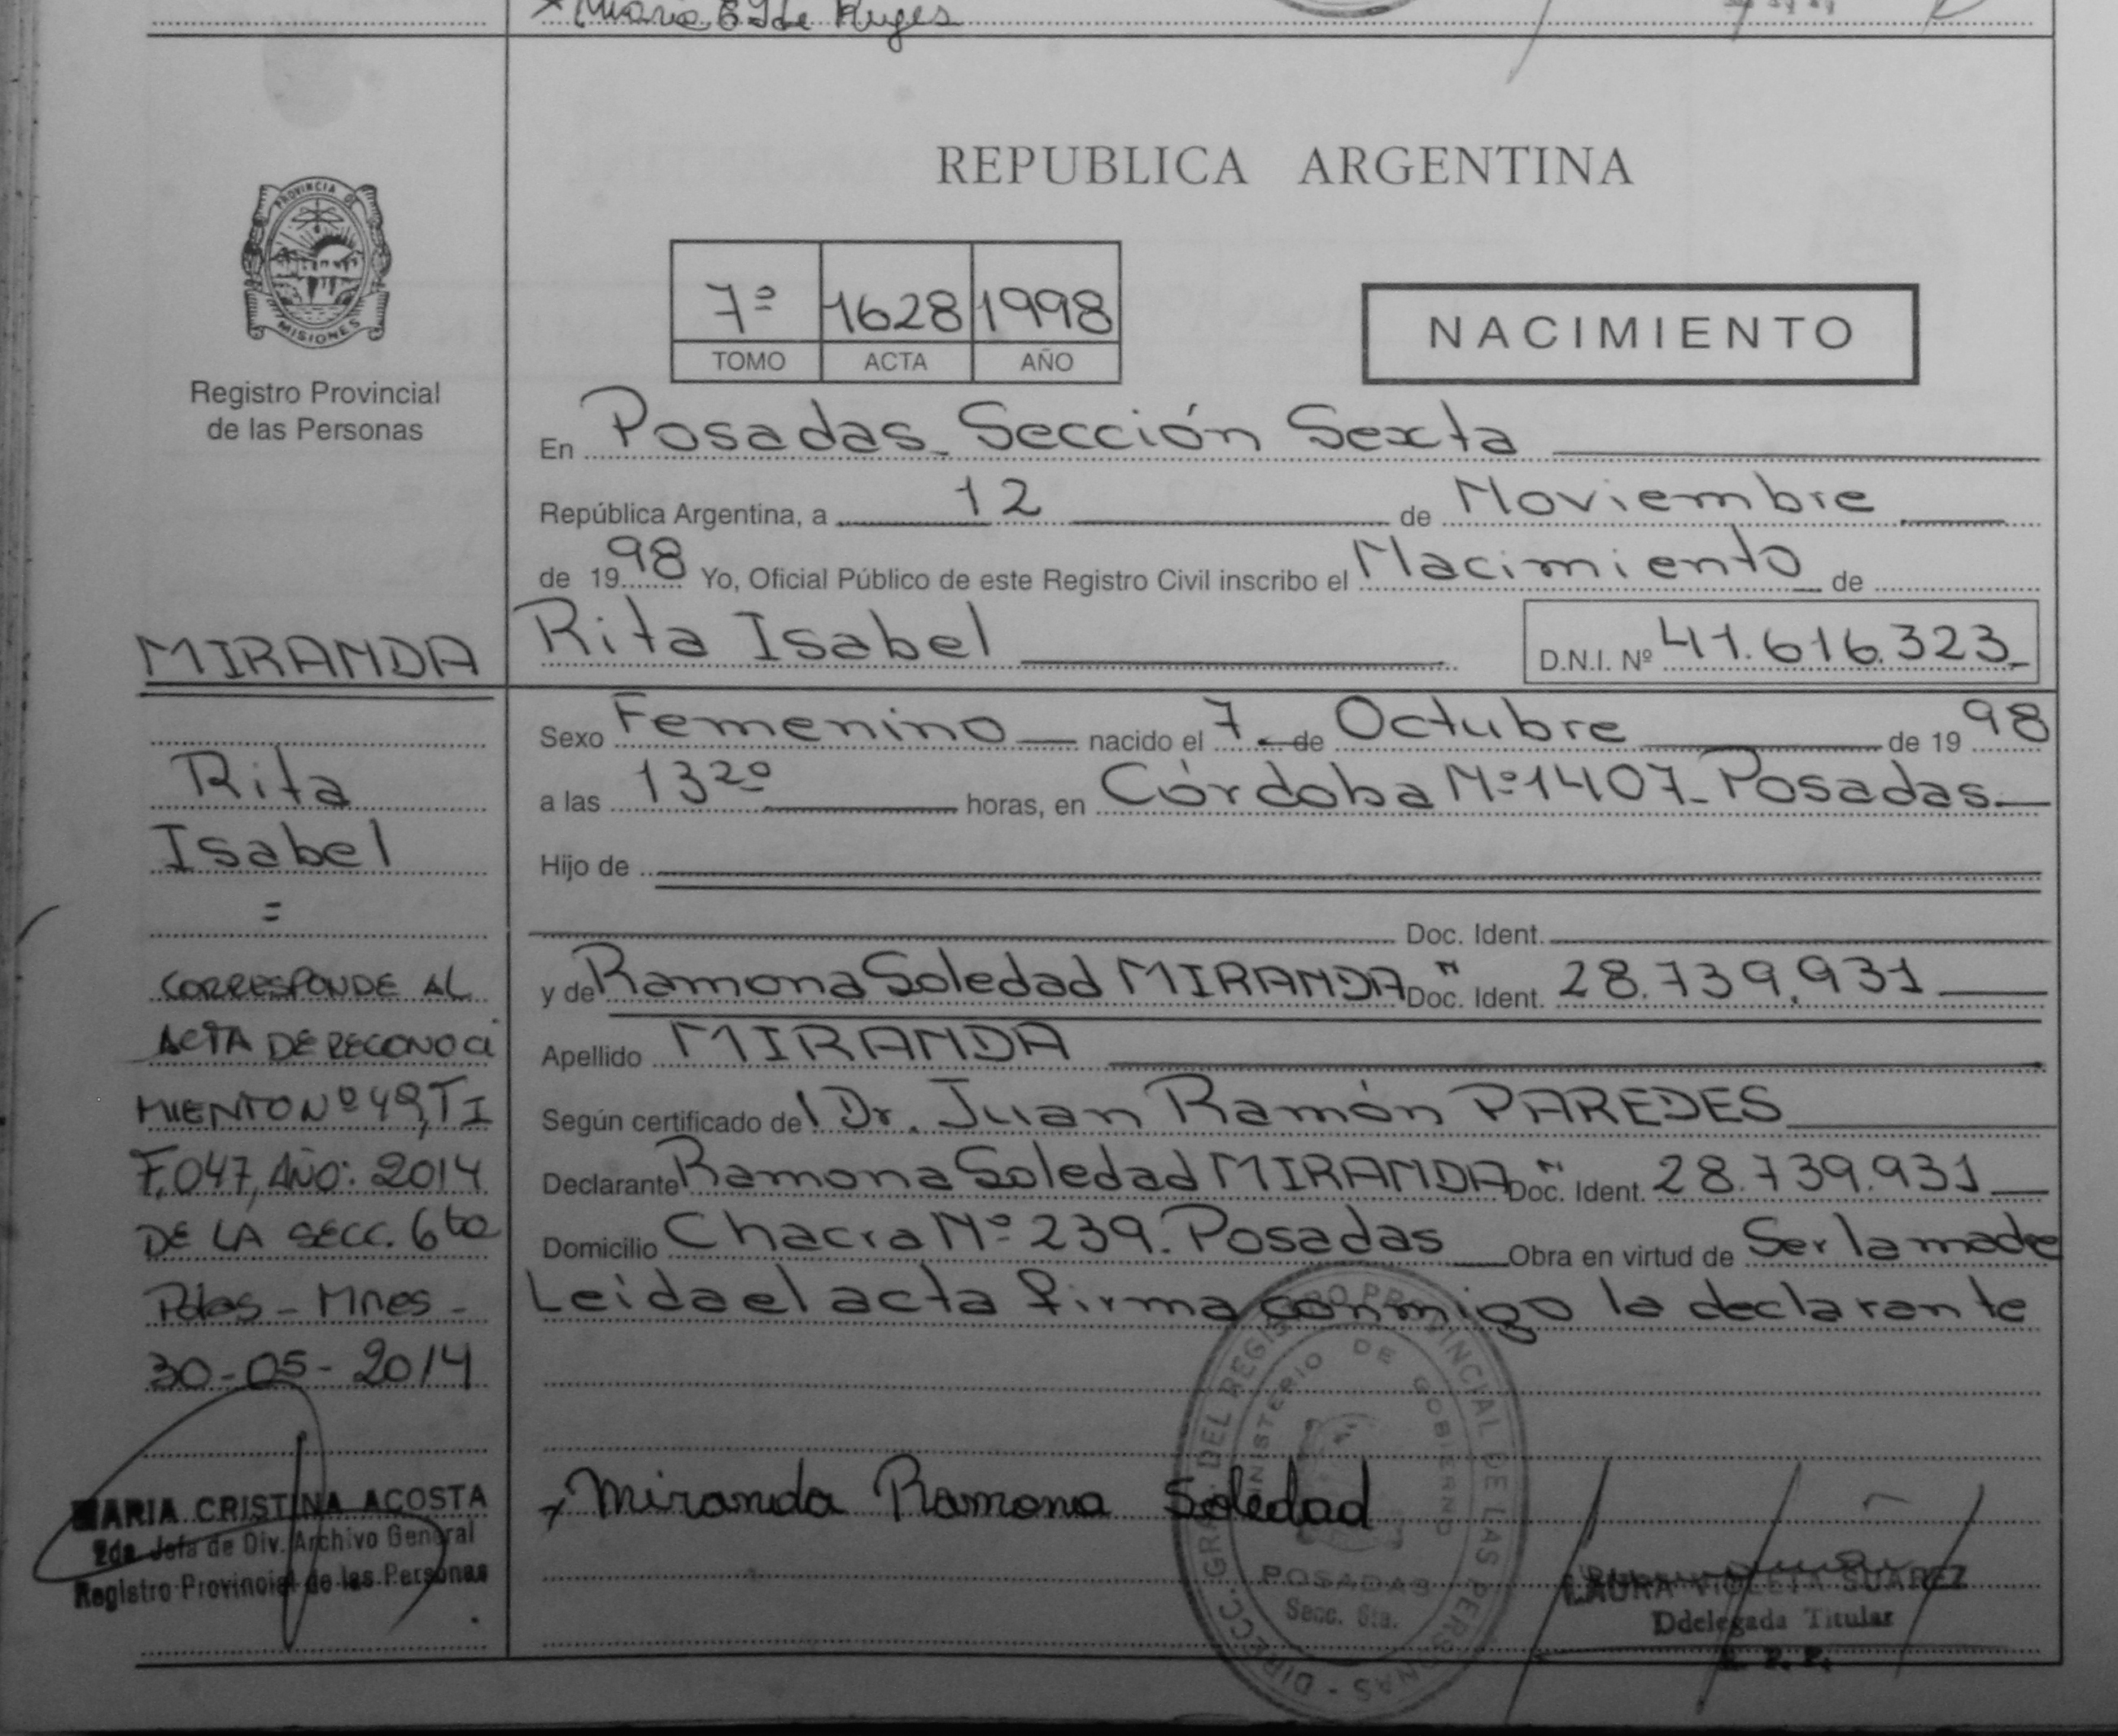 REPUBLICA ARGENTINA
PROVINCIA DE
MISIONES
Registro Provincial
de las Personas
7º 1628 1998
TOMO ACTA AÑO
NACIMIENTO
En Posadas_ Sección Sexta
República Argentina, a 12 de Noviembre
de 1998 Yo, Oficial Público de este Registro Civil inscribo el Nacimiento de
MIRANDA
Rita Isabel D.N.I. Nº 41.616.323_
Sexo Femenino nacido el 7 de Octubre de 1998
a las 13²⁰ horas, en Córdoba Nº 1407_ Posadas
Hijo de
Doc. Ident.
y de Ramona Soledad MIRANDA Doc. Ident. 28.739.931
Apellido MIRANDA
Según certificado del Dr. Juan Ramón PAREDES
Declarante Ramona Soledad MIRANDA Doc. Ident. 28.739.931
Domicilio Chacra Nº 239_ Posadas Obra en virtud de Ser la madre
Leída el acta firma conmigo la declarante
Rita
Isabel
=
CORRESPONDE AL
ACTA DE RECONOCI
MIENTO Nº 49, T I
F, 047, AÑO: 2014
DE LA SECC. 6ta
Pdas - Mnes -
30-05-2014
MARIA CRISTINA ACOSTA
2da. Jefa de Div. Archivo General
Registro Provincial de las Personas
Miranda Ramona Soledad
DIRECC. GRAL. DEL REGISTRO PROVINCIAL DE LAS PERSONAS -
MINISTERIO DE GOBIERNO
POSADAS
Secc. 6ta.
LAURA VIOLETA SUAREZ
Ddelegada Titular